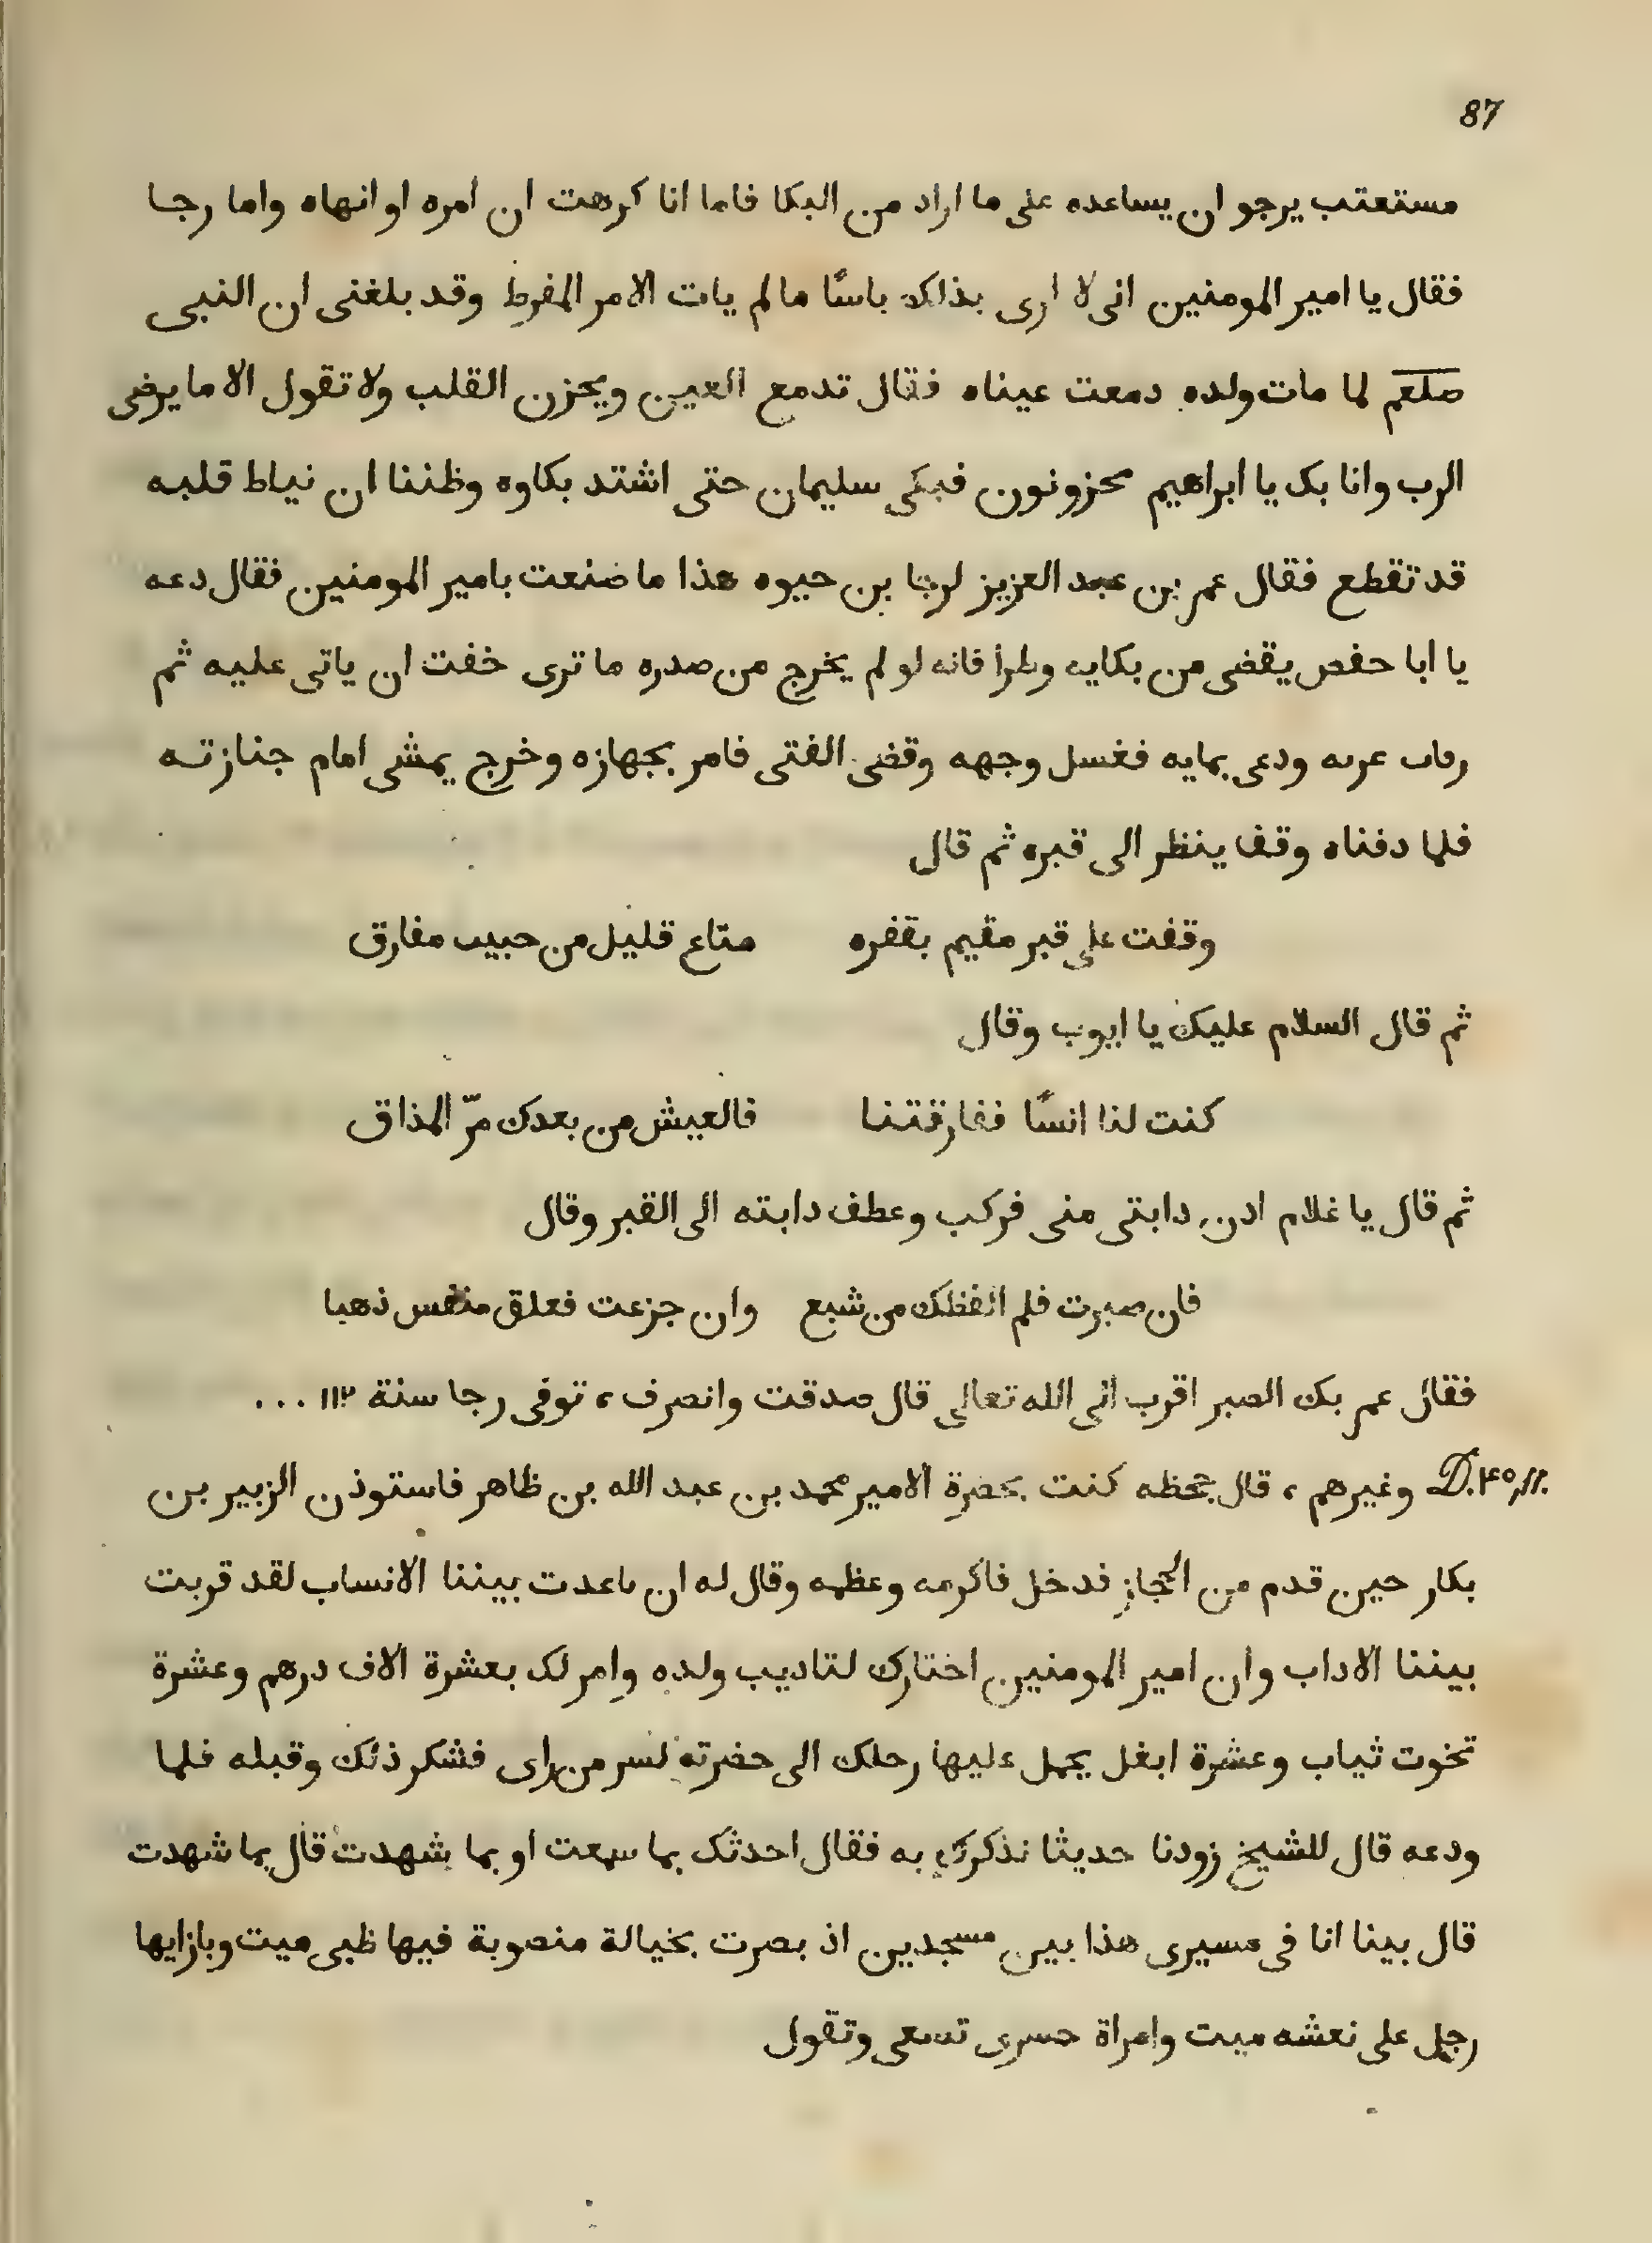 87
مستعتب يرجو ان يساعده على ما اراد من البكا فاما انا كرهت ان امره او انهاه واما رجا
فقال يا امير المومنين انى لا ارى بذلك باسًا ما لم يات الامر المفرط وقد بلغنى ان النبى
صلعم لما مات ولده دمعت عيناه فقال تدمع العين ويحزن القلب ولا تقول الا ما يرضى
الرب وانا بك يا ابراهيم محزونون فبكى سليمان حتى اشتد بكاوه وظننا ان نياط قلبه
قد تقطع فقال عمر بن عبد العزيز لرجا بن حيوه هذا ما صنعت بامير المومنين فقال دعه
يا ابا حفص يقضى من بكايه وطرا فانه لو لم يخرج من صدره ما ترى خفت ان ياتى عليه ثم
ودعى بمايه فغسل وجهه وقضى الفتى فامر بجهازه وخرج يمشى امام جنازته
فلما دفناه وقف ينظر الى قبره ثم قال
وقفت على قبر مقيم بقفره متاع قليل من حبيب مفارق
ثم قال السلام عليك يا ايوب وقال
كنت لنا انسًا ففارقتنا فالعيش من بعدك مرّ المذاق
ثم قال يا غلام ادن دابتى منى فركب وعطف دابته الى القبر وقال
فان صبرت فلم الفظك من شبع وان جزعت فعلق منفس ذهبا
فقال عمر بك الصبر اقرب الى الله تعالى قال صدقت وانصرف، توفى رجا سنة ١١٢ ...
وغيرهم، قال جحظه كنت بحضرة الامير محمد بن عبد الله بن ظاهر فاستوذن الزبير بن
بكار حين قدم من الحجاز فدخل فاكرمه وعظمه وقال له ان باعدت بيننا الانساب لقد قربت
بيننا الاداب وان امير المومنين اختارك لتاديب ولده وامر لك بعشرة الاف درهم وعشرة
تخوت ثياب وعشرة ابغل يحمل عليها رحلك الى حضرته لسر من راى فشكر ذلك وقبله فلما
ودعه قال للشيخ زودنا حديثا نذكرك به فقال احدثك بما سمعت او بما شهدت قال بما شهدت
قال بينا انا فى مسيرى هذا بين مسجدين اذ بصرت بخيالة منصوبة فيها ظبى ميت وبازايها
رجل على نعشه ميت وامراة حسرى تسعى وتقول